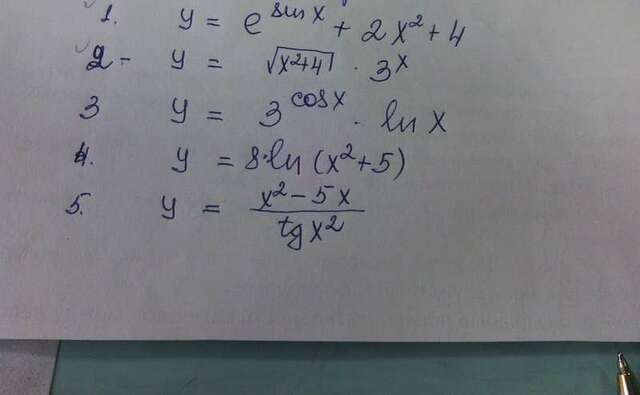 1. y = e^sinx + 2x² + 4
2- y = √(x²+4) · 3^x
3 y = 3^cosx · ln x
4. y = 8·ln (x²+5)
5. y = (x² - 5x)/(tg x²)